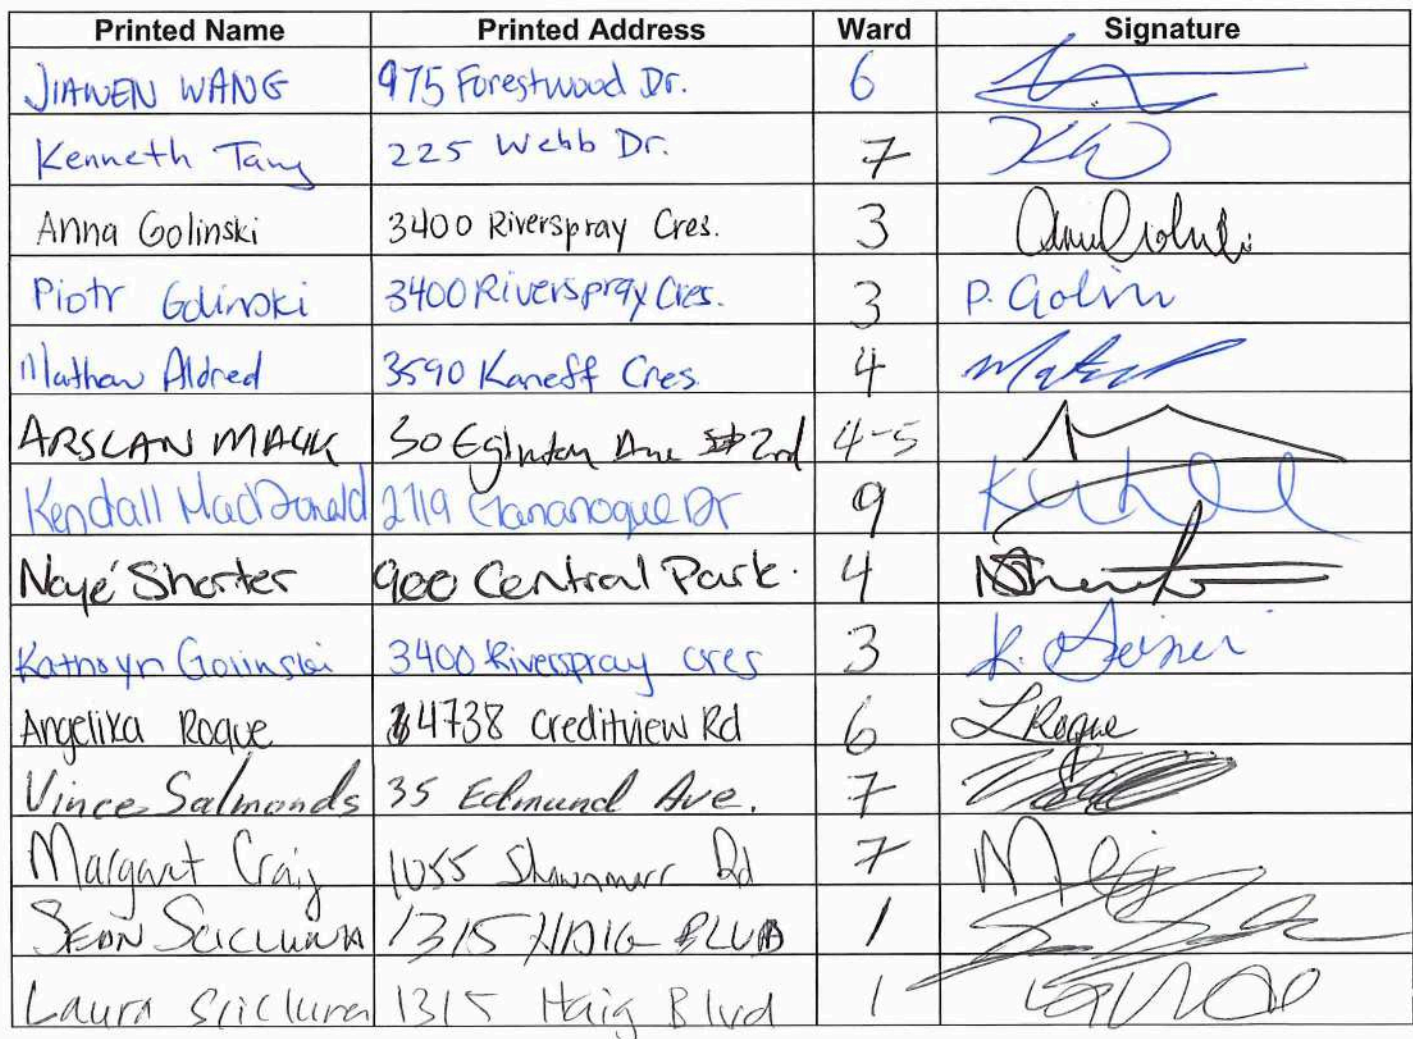 Printed Name Printed Address Ward Signature
JIAWEN WANG 975 Forestwood Dr. 6
Kenneth Tang 225 Webb Dr. 7
Anna Golinski 3400 Riverspray Cres. 3
Piotr Golinski 3400 Riverspray Cres. 3 P. Golin
Mathew Aldred 3590 Kaneff Cres. 4
ARSLAN MALIK 30 Eglinton Ave 2nd 4-5
Kendall MacDonald 2719 Gananoque Dr 9
Nayé Shorter 900 Central Park. 4
Kathryn Golinski 3400 Riverspray cres 3
Angelika Roque 4738 Creditview Rd 6 L Roque
Vince Salmonds 35 Edmund Ave. 7
Margaret Craig 1055 Shawnmarr Rd 7
SEAN SCICLUNA 1315 HAIG BLVD 1
Laura Scicluna 1315 Haig Blvd 1